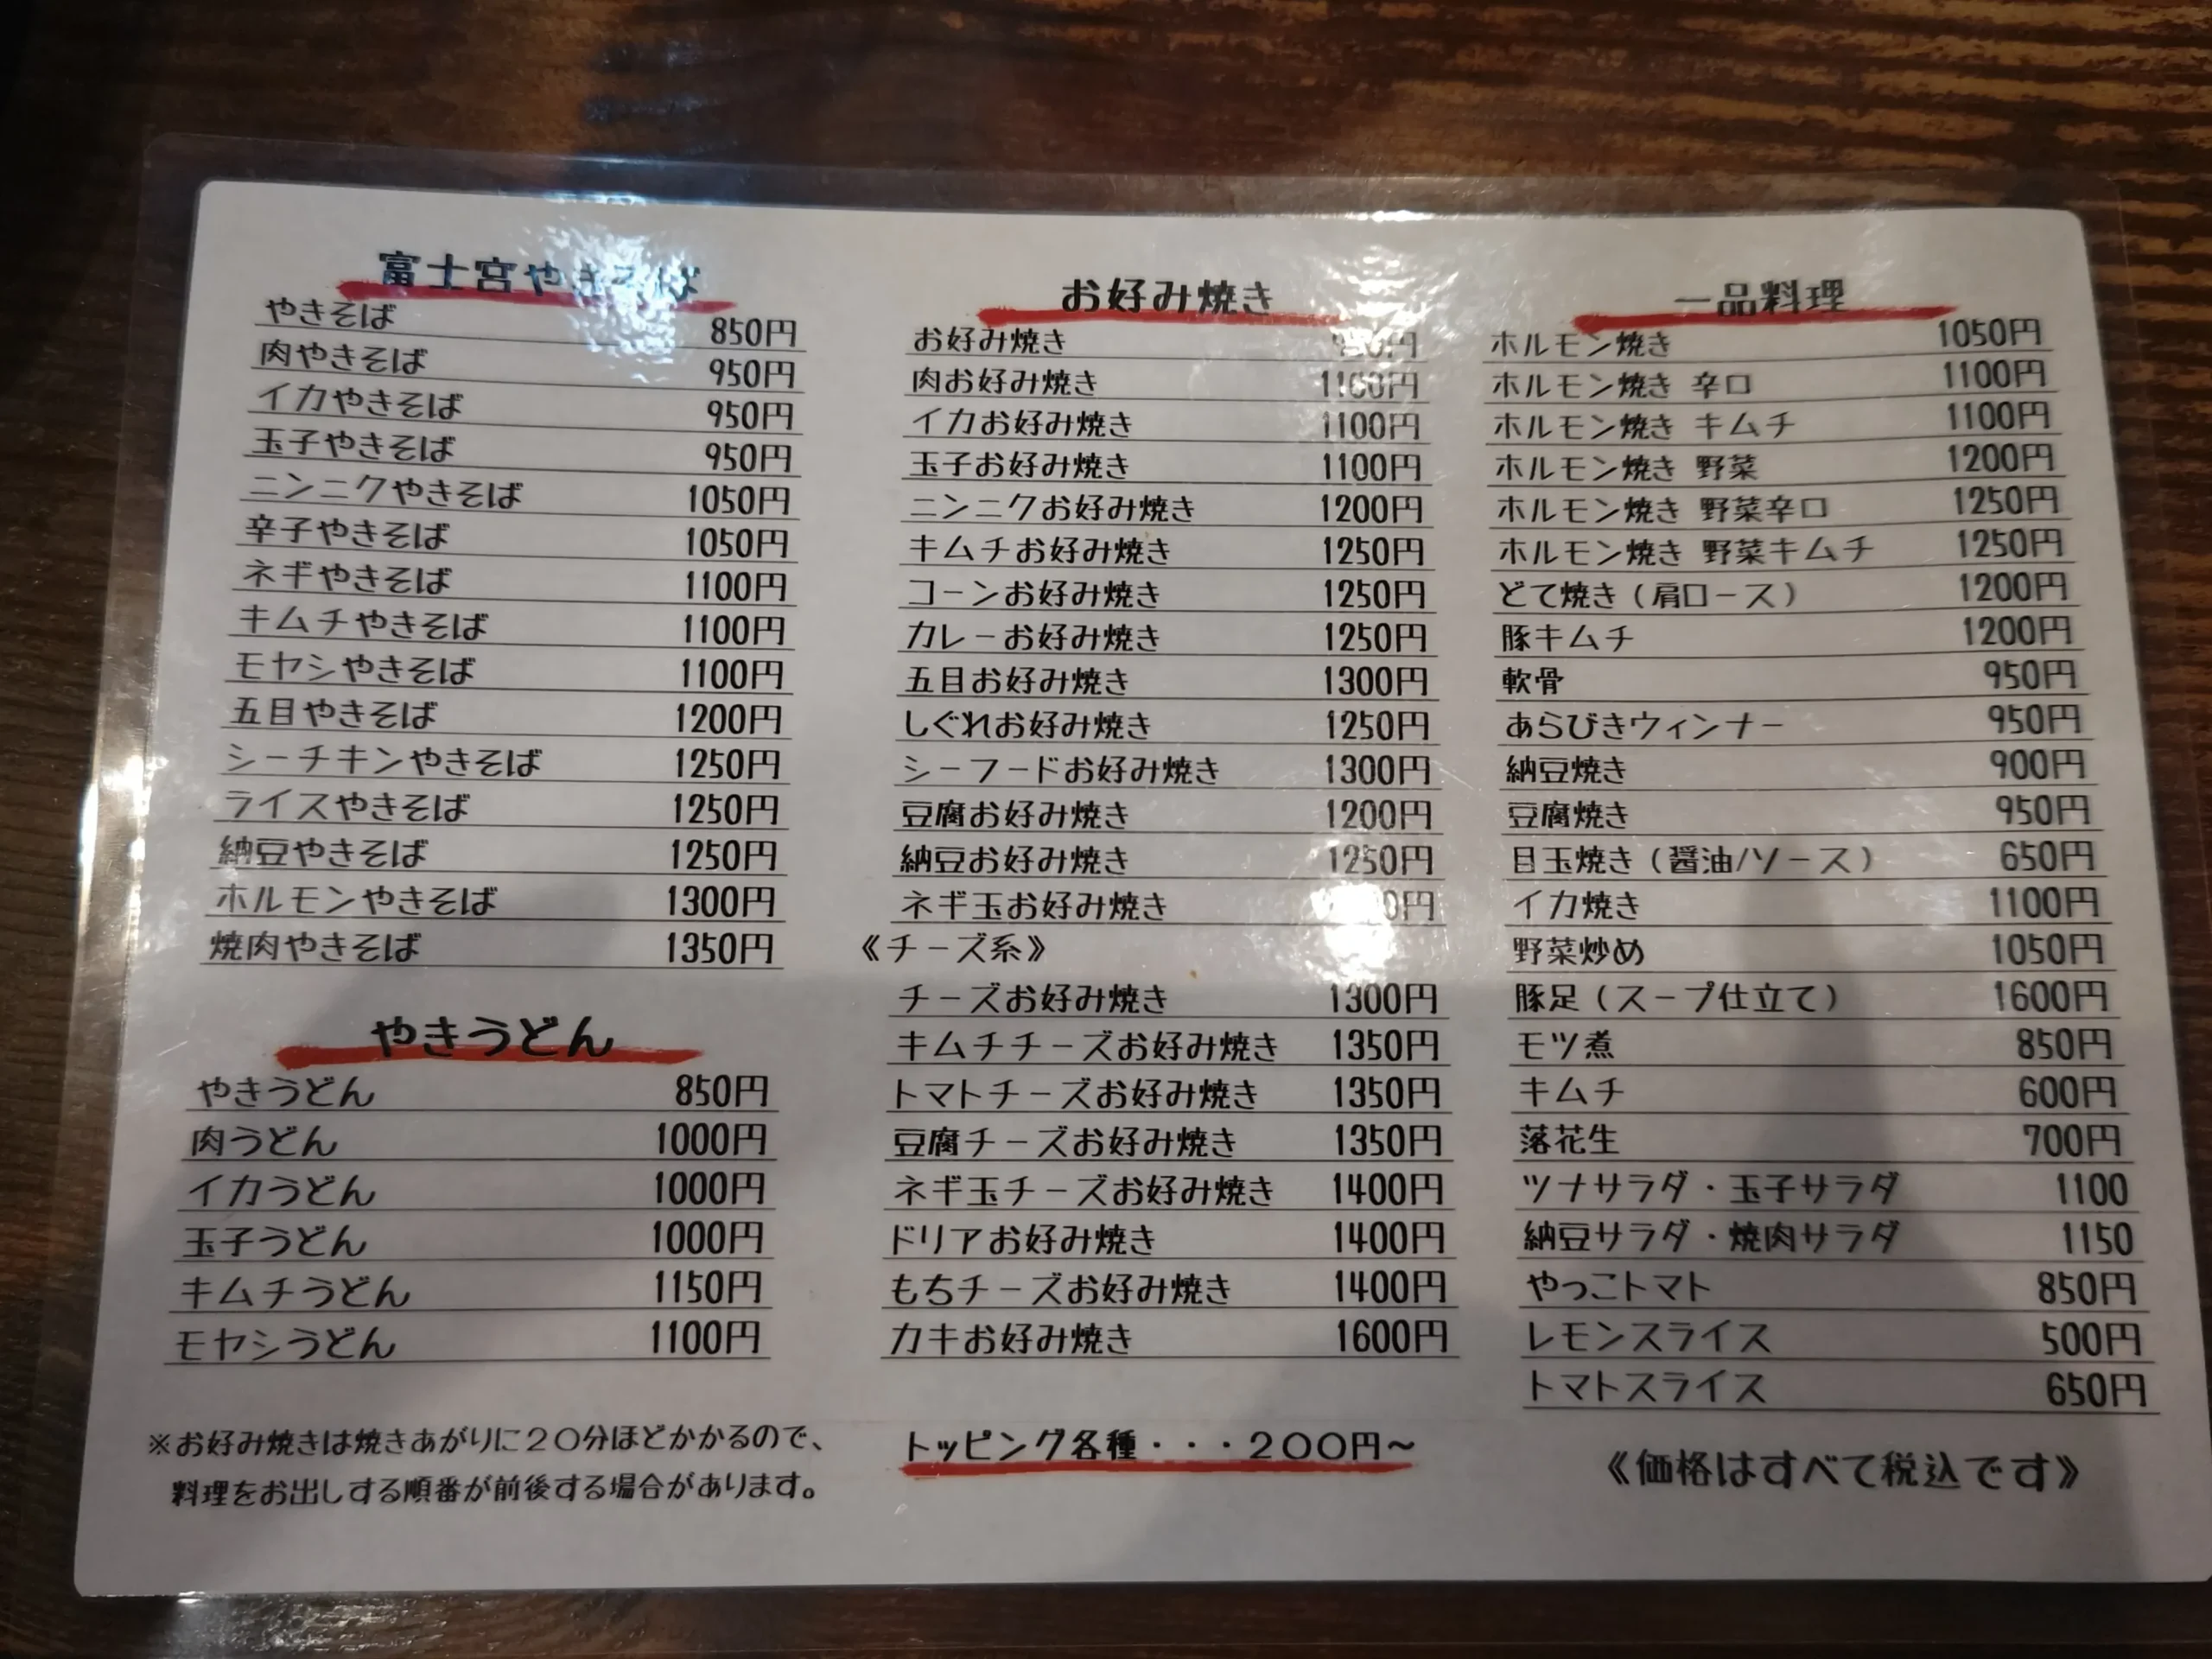 富士宮やきそば
やきそば 850円
肉やきそば 950円
イカやきそば 950円
玉子やきそば 950円
ニンニクやきそば 1050円
辛子やきそば 1050円
ネギやきそば 1100円
キムチやきそば 1100円
モヤシやきそば 1100円
五目やきそば 1200円
シーチキンやきそば 1250円
ライスやきそば 1250円
納豆やきそば 1250円
ホルモンやきそば 1300円
焼肉やきそば 1350円
やきうどん
やきうどん 850円
肉うどん 1000円
イカうどん 1000円
玉子うどん 1000円
キムチうどん 1150円
モヤシうどん 1100円
※お好み焼きは焼きあがりに20分ほどかかるので、
料理をお出しする順番が前後する場合があります。
お好み焼き
お好み焼き
肉お好み焼き 1100円
イカお好み焼き 1100円
玉子お好み焼き 1100円
ニンニクお好み焼き 1200円
キムチお好み焼き 1250円
コーンお好み焼き 1250円
カレーお好み焼き 1250円
五目お好み焼き 1300円
しぐれお好み焼き 1250円
シーフードお好み焼き 1300円
豆腐お好み焼き 1200円
納豆お好み焼き 1250円
ネギ玉お好み焼き
《チーズ系》
チーズお好み焼き 1300円
キムチチーズお好み焼き 1350円
トマトチーズお好み焼き 1350円
豆腐チーズお好み焼き 1350円
ネギ玉チーズお好み焼き 1400円
ドリアお好み焼き 1400円
もちチーズお好み焼き 1400円
カキお好み焼き 1600円
トッピング各種・・・200円～
一品料理
ホルモン焼き 1050円
ホルモン焼き 辛口 1100円
ホルモン焼き キムチ 1100円
ホルモン焼き 野菜 1200円
ホルモン焼き 野菜辛口 1250円
ホルモン焼き 野菜キムチ 1250円
どて焼き（肩ロース） 1200円
豚キムチ 1200円
軟骨 950円
あらびきウィンナー 950円
納豆焼き 900円
豆腐焼き 950円
目玉焼き（醤油/ソース） 650円
イカ焼き 1100円
野菜炒め 1050円
豚足（スープ仕立て） 1600円
モツ煮 850円
キムチ 600円
落花生 700円
ツナサラダ・玉子サラダ 1100
納豆サラダ・焼肉サラダ 1150
やっこトマト 850円
レモンスライス 500円
トマトスライス 650円
《価格はすべて税込です》